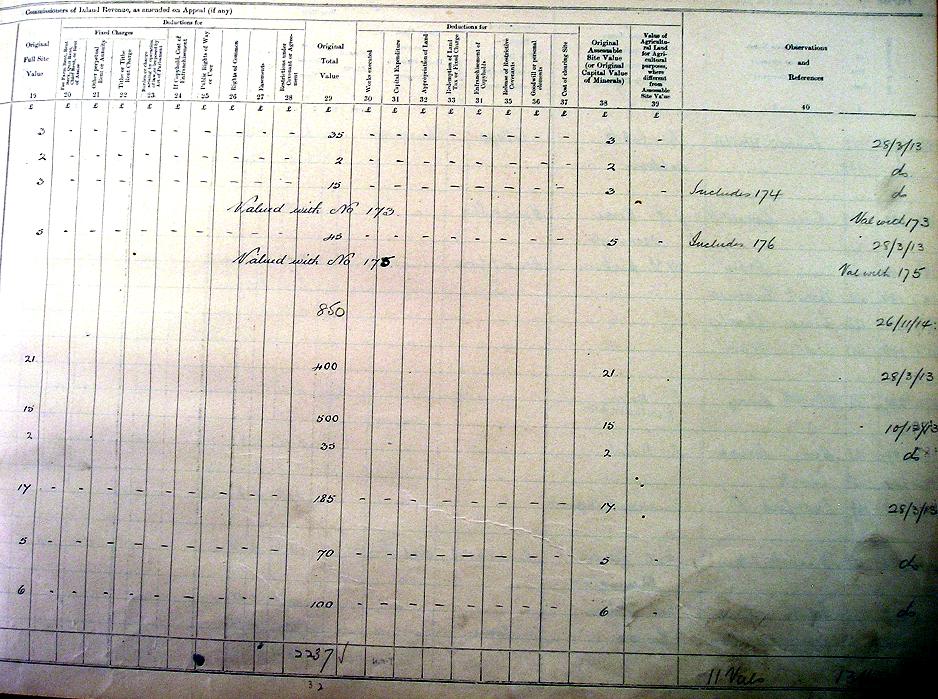 Commissioners of Inland Revenue, as amended on Appeal (if any)
Deductions for Deductions for
Fixed Charges
Original Full Site Value
Other perpetual Rent or Annuity
Tithe or Tithe Rent Charge
If Copyhold, Cost of Enfranchisement
Public Rights of Way or User
Rights of Common
Easements
Restrictions under Covenant or Agreement
Original Total Value
Works executed
Capital Expenditure
Appropriation of Land
Redemption of Land Tax or Fixed Charge
Enfranchisement of Copyholds
Release of Restrictive Covenants
Goodwill or personal elements
Cost of clearing Site
Original Assessable Site Value (or Original Capital Value of Minerals)
Value of Agricultural Land for Agricultural purposes, where different from Assessable Site Value
Observations and References
19 20 21 22 23 24 25 26 27 28 29 30 31 32 33 34 35 36 37 38 39 40
£ £ £ £ £ £ £ £ £ £ £ £ £ £ £ £ £ £ £ £ £
3 - - - - - - - - - 35 - - - - - - - - 3 - 28/3/13
2 - - - - - - - - - 2 - - - - - - - - 2 - do
3 - - - - - - - - - 15 - - - - - - - - 3 - Includes 174 do
Valued with No 173 Val with 173
5 - - - - - - - - - 45 - - - - - - - - 5 - Includes 176 28/3/13
Valued with No 175 Val with 175
850 26/11/14
21 400 21 28/3/13
15 500 15
2 35 2 do
17 - - - - - - - - - 185 - - - - - - - - 17 - 28/3/13
5 - - - - - - - - - 70 - - - - - - - - 5 - do
6 - - - - - - - - - 100 - - - - - - - - 6 - do
2237 √ 11 Vals
32